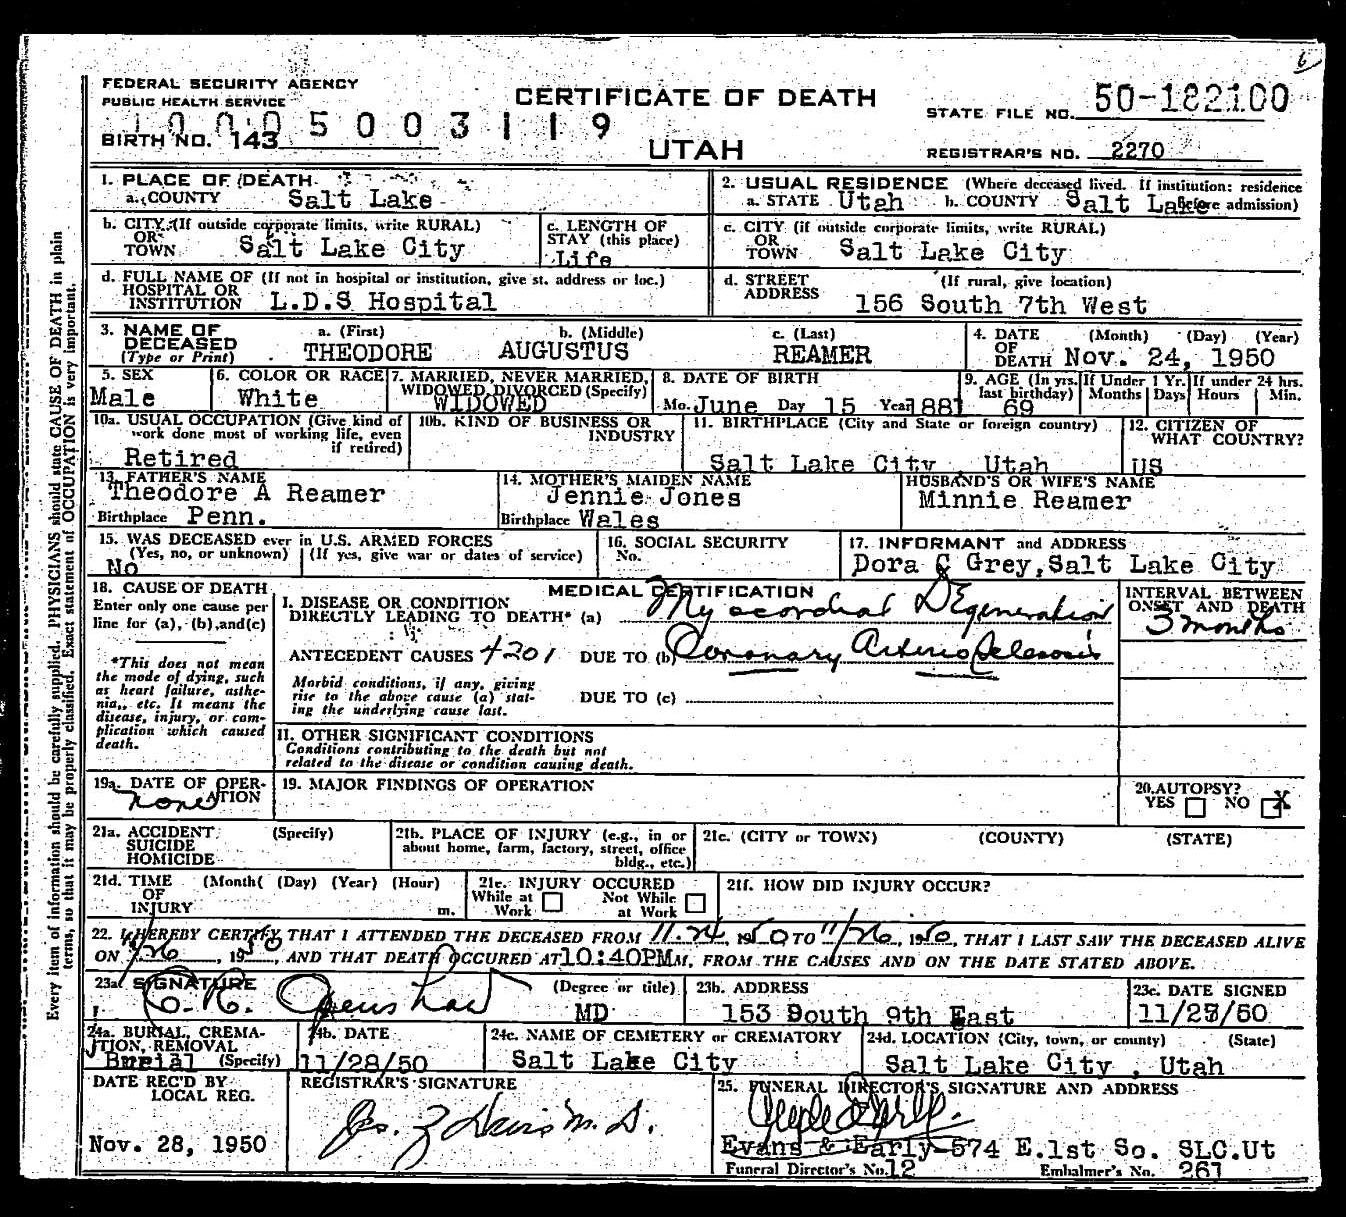 6
FEDERAL SECURITY AGENCY
PUBLIC HEALTH SERVICE
CERTIFICATE OF DEATH
STATE FILE NO. 50-182100
5003119
BIRTH NO. 143
UTAH
REGISTRAR'S NO. 2270
1. PLACE OF DEATH
a. COUNTY Salt Lake
2. USUAL RESIDENCE (Where deceased lived. If institution: residence
a. STATE Utah b. COUNTY Salt Lake before admission)
b. CITY (If outside corporate limits, write RURAL)
OR
TOWN Salt Lake City
c. LENGTH OF
STAY (this place)
Life
c. CITY (if outside corporate limits, write RURAL)
OR
TOWN Salt Lake City
d. FULL NAME OF (If not in hospital or institution, give st. address or loc.)
HOSPITAL OR
INSTITUTION L.D.S Hospital
d. STREET (If rural, give location)
ADDRESS 156 South 7th West
3. NAME OF DECEASED (Type or Print)
a. (First) b. (Middle) c. (Last)
THEODORE AUGUSTUS REAMER
4. DATE (Month) (Day) (Year)
OF
DEATH Nov. 24, 1950
5. SEX
Male
6. COLOR OR RACE
White
7. MARRIED, NEVER MARRIED,
WIDOWED DIVORCED (Specify)
WIDOWED
8. DATE OF BIRTH
Mo. June Day 15 Year 1881
9. AGE (In yrs. last birthday)
69
If Under 1 Yr.
Months Days
If under 24 hrs.
Hours Min.
10a. USUAL OCCUPATION (Give kind of
work done most of working life, even
if retired)
Retired
10b. KIND OF BUSINESS OR
INDUSTRY
11. BIRTHPLACE (City and State or foreign country)
Salt Lake City, Utah
12. CITIZEN OF
WHAT COUNTRY?
US
13. FATHER'S NAME
Theodore A Reamer
Birthplace Penn.
14. MOTHER'S MAIDEN NAME
Jennie Jones
Birthplace Wales
HUSBAND'S OR WIFE'S NAME
Minnie Reamer
15. WAS DECEASED ever in U.S. ARMED FORCES
(Yes, no, or unknown) (If yes, give war or dates of service)
No
16. SOCIAL SECURITY
No.
17. INFORMANT and ADDRESS
Dora C Grey, Salt Lake City
18. CAUSE OF DEATH
Enter only one cause per
line for (a), (b), and (c)
*This does not mean
the mode of dying, such
as heart failure, asthe-
nia, etc. It means the
disease, injury, or com-
plication which caused
death.
MEDICAL CERTIFICATION
I. DISEASE OR CONDITION
DIRECTLY LEADING TO DEATH* (a) Myocordial Degeneration
ANTECEDENT CAUSES 4201 DUE TO (b) Coronary Arterio Sclerosis
Morbid conditions, if any, giving
rise to the above cause (a) stat-
ing the underlying cause last.
DUE TO (c)
INTERVAL BETWEEN
ONSET AND DEATH
3 months
II. OTHER SIGNIFICANT CONDITIONS
Conditions contributing to the death but not
related to the disease or condition causing death.
19a. DATE OF OPER-
ATION
none
19. MAJOR FINDINGS OF OPERATION
20. AUTOPSY?
YES NO X
21a. ACCIDENT (Specify)
SUICIDE
HOMICIDE
21b. PLACE OF INJURY (e.g., in or
about home, farm, factory, street, office
bldg., etc.)
21c. (CITY or TOWN) (COUNTY) (STATE)
21d. TIME (Month( (Day) (Year) (Hour)
OF
INJURY m.
21e. INJURY OCCURED
While at Work Not While at Work
21f. HOW DID INJURY OCCUR?
22. I HEREBY CERTIFY THAT I ATTENDED THE DECEASED FROM 11.24, 1950 TO 11/26, 1950, THAT I LAST SAW THE DECEASED ALIVE
ON 26, 1950, AND THAT DEATH OCCURED AT 10:40PM M, FROM THE CAUSES AND ON THE DATE STATED ABOVE.
23a. SIGNATURE (Degree or title)
C. R. Openshaw MD
23b. ADDRESS
153 South 9th East
23c. DATE SIGNED
11/28/50
24a. BURIAL, CREMA-
TION, REMOVAL
Burial (Specify)
24b. DATE
11/28/50
24c. NAME OF CEMETERY or CREMATORY
Salt Lake City
24d. LOCATION (City, town, or county) (State)
Salt Lake City, Utah
DATE REC'D BY
LOCAL REG.
Nov. 28, 1950
REGISTRAR'S SIGNATURE
Jas. Z Davis M. D.
25. FUNERAL DIRECTOR'S SIGNATURE AND ADDRESS
Evans & Early-574 E.1st So. SLC.Ut
Funeral Director's No. 12 Embalmer's No. 261
Every item of information should be carefully supplied. PHYSICIANS should state CAUSE OF DEATH in plain
terms, so that it may be properly classified. Exact statement of OCCUPATION is very important.